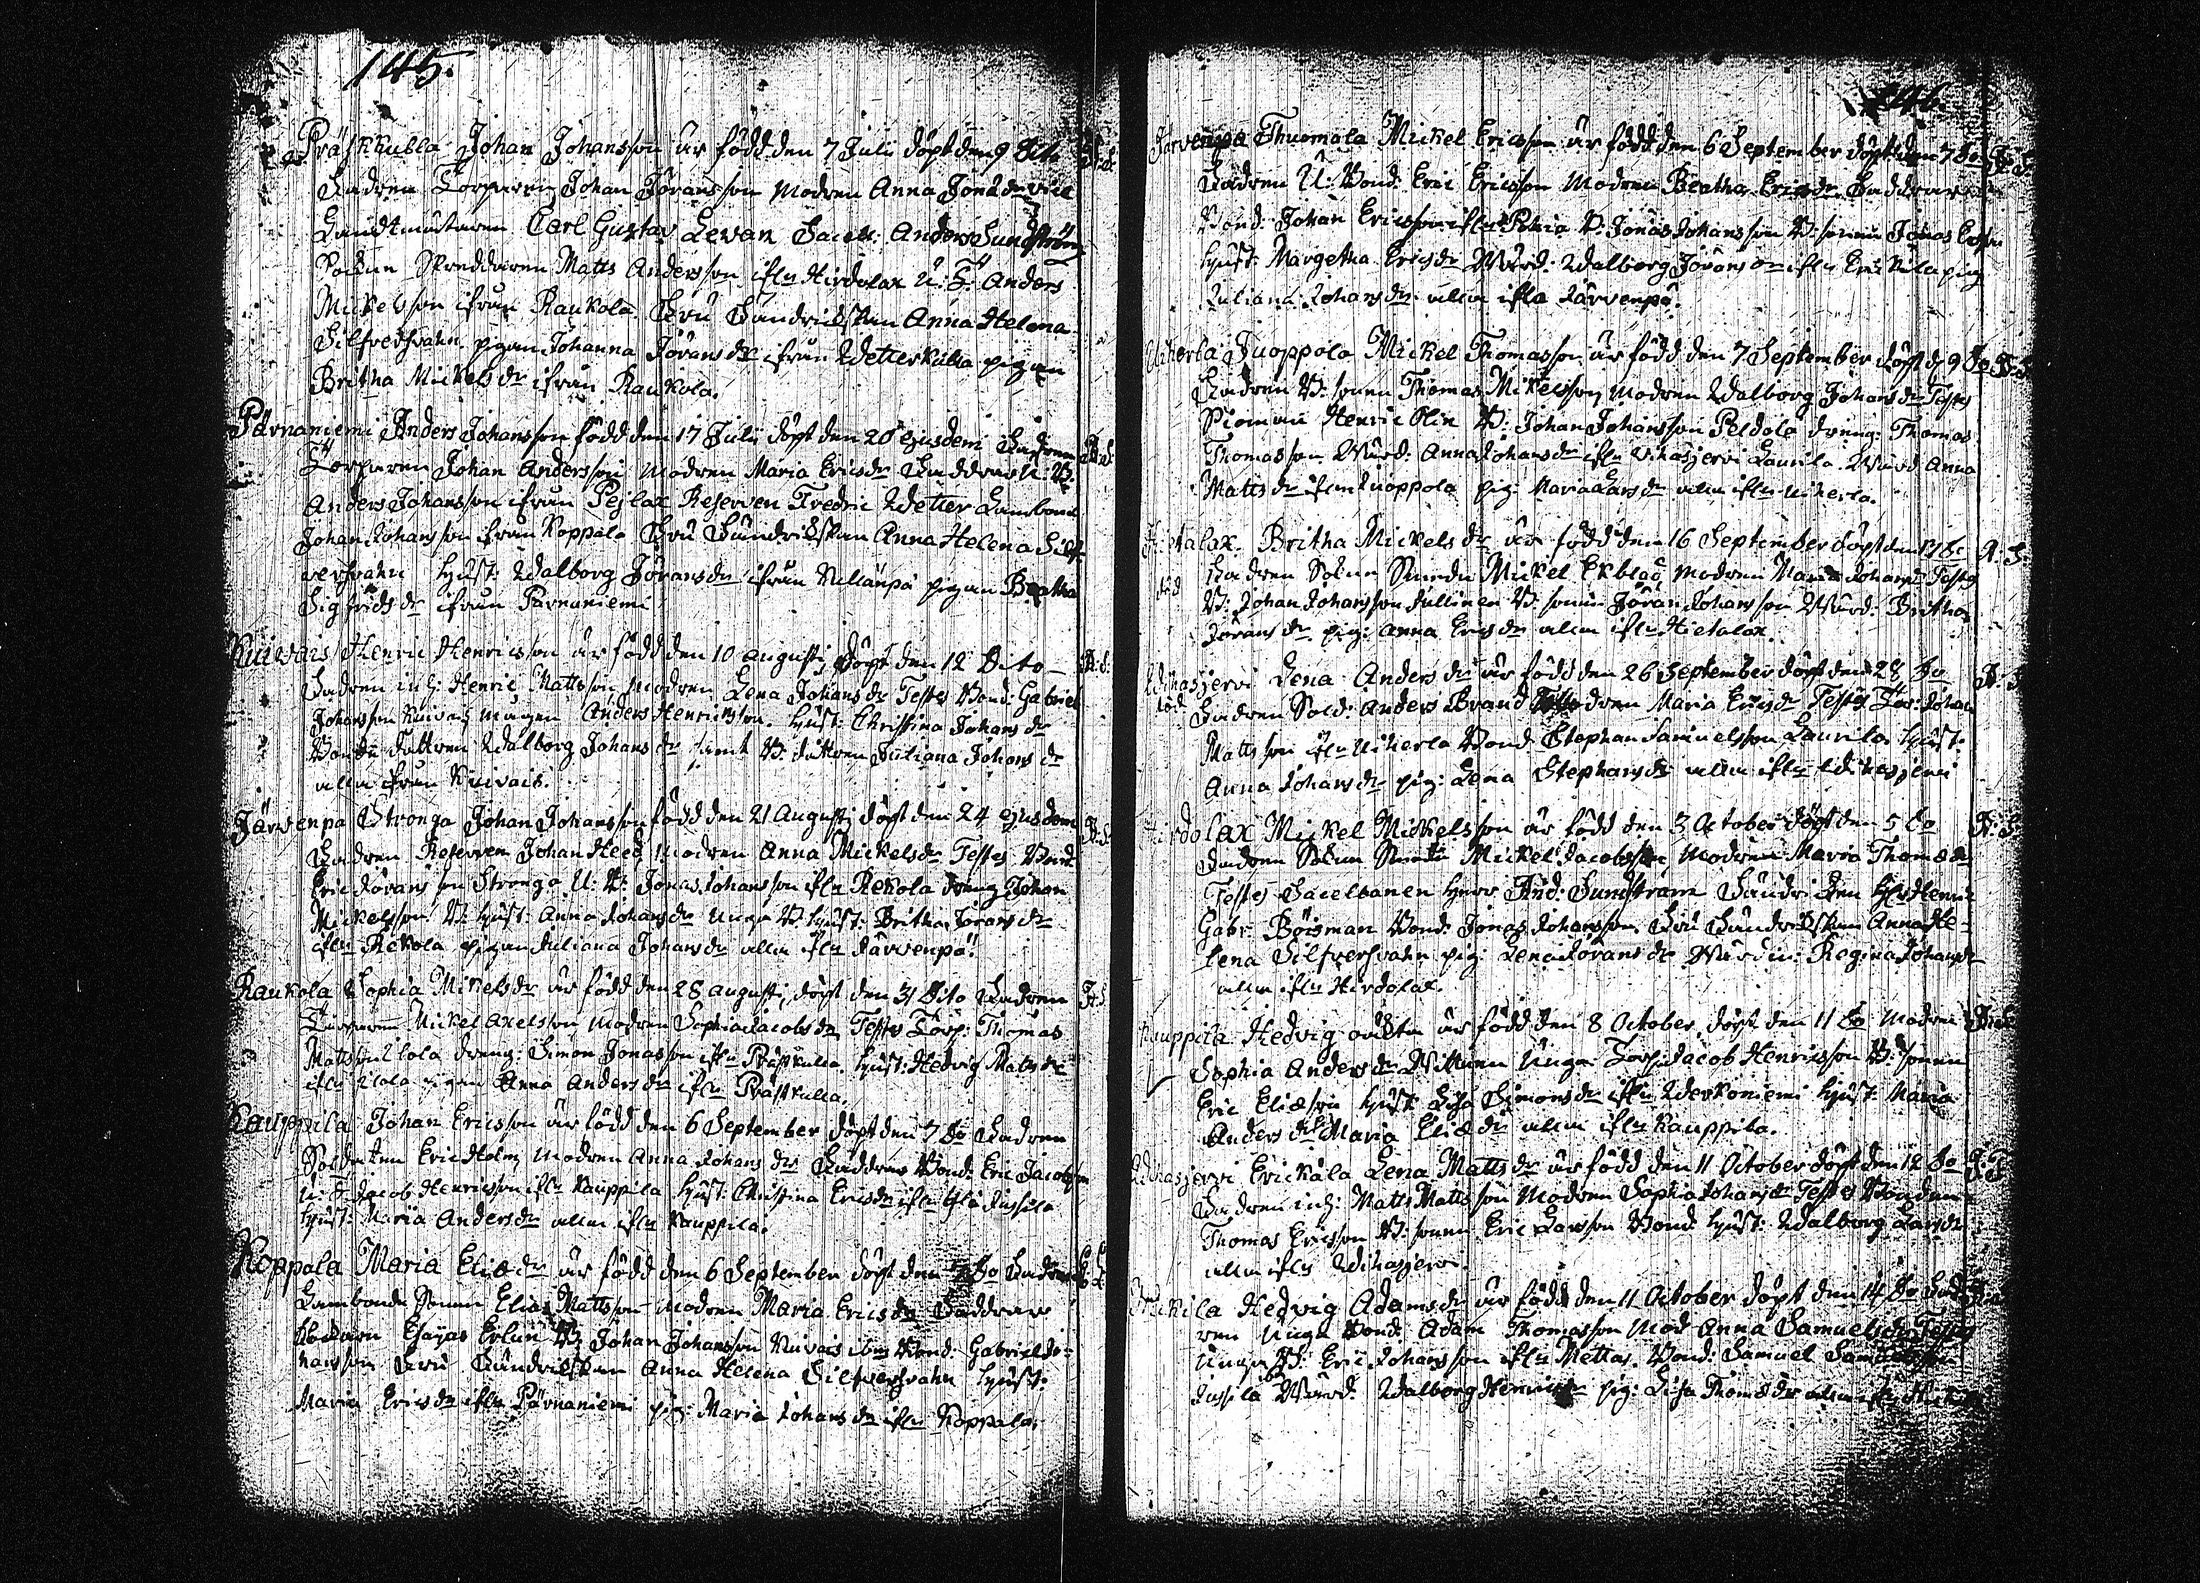 145.
Präskulla Johan Johansson är född den 7 Julii döpt den 9 Dito
Fadren Torparen Johan Jöransson Modren Anna
Landtmätaren Carl Gustav Levan Sacell: Anders Sundström
Sockne Skreddaren Matts Andersson ifrn Hirdolax U: T: Anders
Mickelsson ifrån Raukola Fru Fändrickskan Anna Helena
Silfversvahn pigan Johanna Jörans dr ifrån Wetterkulla pigan
Britha Mickels dr ifrån Raukola.
Pärnaniemi Anders Johansson född den 17 Julii döpt den 20 ejusdem Fadren
Torparen Johan Andersson Modren Maria Ericsdr Faddrar U: B:
Anders Johansson ifrån Pejlax Reserven Fredric Wetter Lambonde
Johan Johansson ifrån Koppala Fru Fändrickskan Anna Helena Silf-
versvahn Hust: Walborg Jöransdr ifrån pigan Beatha
Sigfrids dr ifrån Pärnaniemi
Kuivais Henric Henricsson är född den 10 Augusti döpt den 12 Dito
Fadren inh: Henric Mattsson Modren Lena Johans dr Testes Bond: Gabriel
Johansson Kuivais mågen Anders Henricsson. Hust: Christina Johans dr
Bonde dottren Walborg Johans dr samt B: dottren Juliana Johans dr
alla ifrån Kuivais.
Järvenpä Stronga Johan Johansson född den 21 Augusti döpt den 24 ejusdem
Fadren Reserven Johan Heed Modren Anna Mickelsdr Testes Bond:
Eric Jöransson Stronga U: B: Jonas Johansson ifrn Rekola dreng Johan
Mickelsson B: Hust: Anna Johansdr Unga B: Hust: Britha Jöransdr
ifrn Rekola pigan Juliana Johansdr alla ifrn Järvenpä.
Raukola Sophia Mickelsdr är född den 28 Augusti, döpt den 31 Dito Fadren
Torparen Mickel Axelsson Modren Sophia Jacobsdr Testes Torp: Thomas
Mattsson Ulola dreng: Simon Jonasson ifrn Prästkulla. Hust: Hedvig Matts dr
ifrn Ulola pigan Anna Anders dr ifrn Prästkulla.
Kauppila Johan Ericsson är född den 6 September döpt den 7 Do Fadren
Soldaten Eric Holm Modren Anna Johans dr Faddrar Bond: Eric Jacobsson
U: T: Jacob Henricsson ifrn Kauppila Hust: Christina Ericsdr ifrn Jussila
Hust: Maria Andersdr alla ifrn Kauppila.
Koppala Maria Eliædr är född den 6 September döpt den Do Fadren
Lambonde Sonen Elias Mattsson Modren Maria Ericsdr Faddrar
Klockaren Esajas Erlun B: Johan Johansson Kuivais Bond: Gabriel Jo-
hansson Fru Fändrickskan Anna Helena Silfversvahn Hust:
Maria Ericsdr ifrn Pärnaniemi pig: Maria Johans dr ifrn Koppala.
146.
Järvenpä Thuomala Mickel Ericsson är född den 6 September döpt den 7 Do
Fadren U: Bond: Eric Ericsson Modren Beatha Ericsdr Faddrar
Bond: Johan Ericsson ifrn B: Jonas Johansson B: sonen Jonas
Hust: Margetha Ericsdr Wärd: Walborg Jörans dr ifrn pig
Juliana Johans dr alla ifrn Järvenpä.
Uiherla Juoppola Mickel Thomasson är född den 7 September döpt d 9 Do
Fadren B: sonen Thomas Mickelsson Modren Walborg Johansdr Testes
Henric Olin B: Johan Johansson Peldola dreng: Thomas
Thomasson Wärd: Anna Johansdr ifrn Vihasjervi Laurila. Wärd Anna
Matts dr ifrn Juoppola pig: Maria Larsdr alla ifrn Uiherla.
Hietalax. Britha Mickels dr är född den 16 September döpt den Do
död Fadren Sockne Mickel Ekblad Modren Maria Johansdr Testes
B: Johan Johansson Jullinen B: sonen Jöran Johansson Wärd: Britha
Jörans dr pig: Anna Ericsdr alla ifrn Hietalax.
Wihasjervi Lena Anders dr är född den 26 September döpt den 28 Do
död Fadren Sold: Anders Brand Modren Maria Ericsdr Testes Tor: Johan
Mattsson ifrn Uiherla Bond: Stephan Samuelsson Laurila. Hust:
Anna Johansdr pig: Lena Stephansdr alla ifrn Wihasjervi
Hirdolax Mickel Mickelsson är född den 3 October döpt den 5 Do
Fadren Sockne Mickel Jacobsson Modren Maria Thomædr
Testes Sacellanen Herr And: Sundström Fändricken Hr Henric
Gabr: Böisman Bond: Jonas Johansson. Fru Fändrickskan Anna He-
lena Silfversvahn pig: Lena Jörans dr Wärdin: Regina Johansdr
alla ifrn Hirdolax.
Kauppila Hedvig oäkta är född den 8 October döpt den 11 Do Modren
Sophia Anders dr Wittnen Unga Torp: Jacob Henricsson B: sonen
Eric Eliæson Hust: Lisa Simonsdr ifrn Werkoniemi Hust: Maria
Anders dr Maria Eliæ dr alla ifrn Kauppila.
Wihasjervi Erickäla Lena Matts dr är född den 11 October döpt den 12 Do
Fadren inh: Matts Mattsson Modren Sophia Johansdr Testes Bonden
Thomas Ericsson B: sonen Eric Larsson Bond: Hust: Walborg Larsdr
alla ifrn Wihasjervi.
Hedvig Adamsdr är född den 11 October döpt den 14 Do Fad-
ren Unga Bond: Adam Thomasson Mod: Anna Samuelsdr Testes
Unga B: Eric Johansson ifrn Mettas. Bond: Samuel
Jussila Wärd: Walborg pig: Lisa Thomædr alla ifrn